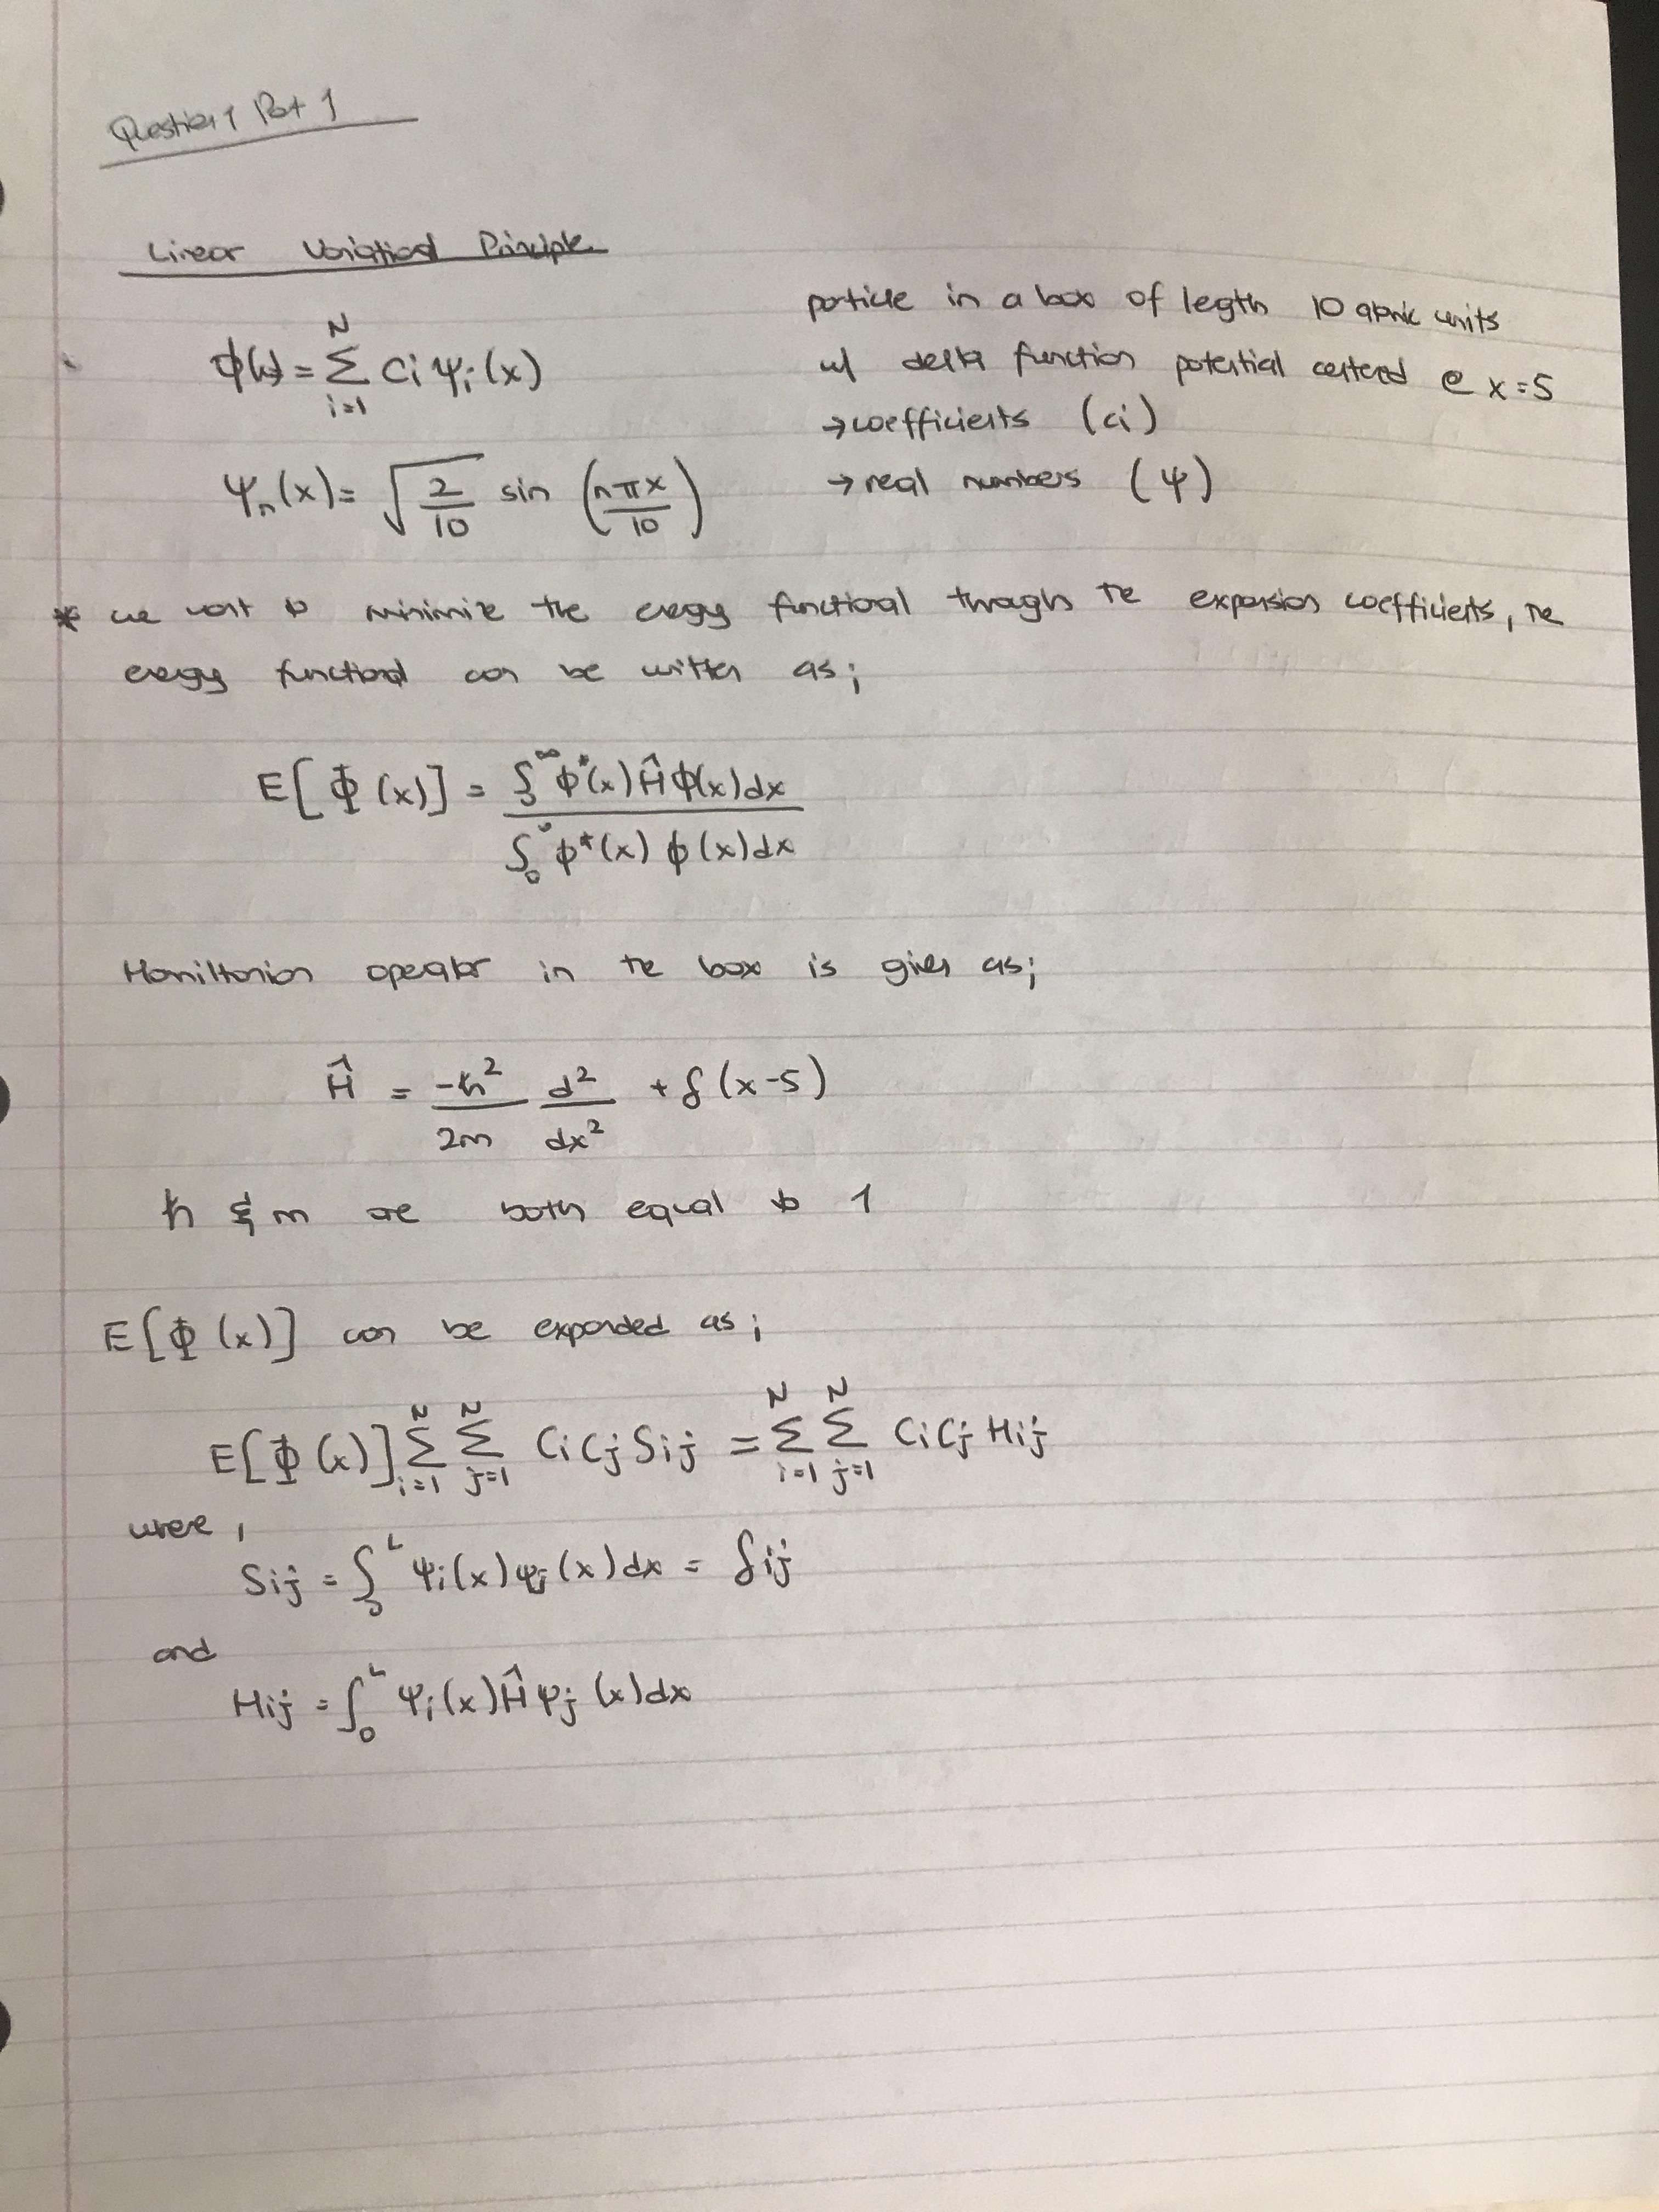 Question 1 Part 1
Linear Variational Principle
particle in a box of length 10 atomic units
ϕ(x) = Σ_{i=1}^{N} Ci ψi (x)
w/ delta function potential centered @ x=5
→ coefficients (ci)
ψn (x) = √(2/10) sin (nπx/10)
→ real numbers (ψ)
* we want to minimize the energy functional through the expansion coefficients, the
energy functional can be written as;
E[Φ (x)] = ∫₀^∞ ϕ*(x) Ĥ ϕ(x) dx / ∫₀^L ϕ*(x) ϕ (x) dx
Hamiltonian operator in the box is given as;
Ĥ = -ħ²/2m d²/dx² + δ (x-5)
ħ & m are both equal to 1
E[Φ (x)] can be expanded as;
E[Φ (x)] Σ_{i=1}^{N} Σ_{j=1}^{N} Ci Cj Sij = Σ_{i=1}^{N} Σ_{j=1}^{N} Ci Cj Hij
where,
Sij = ∫₀^L ψi (x) ψj (x) dx = δij
and
Hij = ∫₀^L ψi (x) Ĥ ψj (x) dx